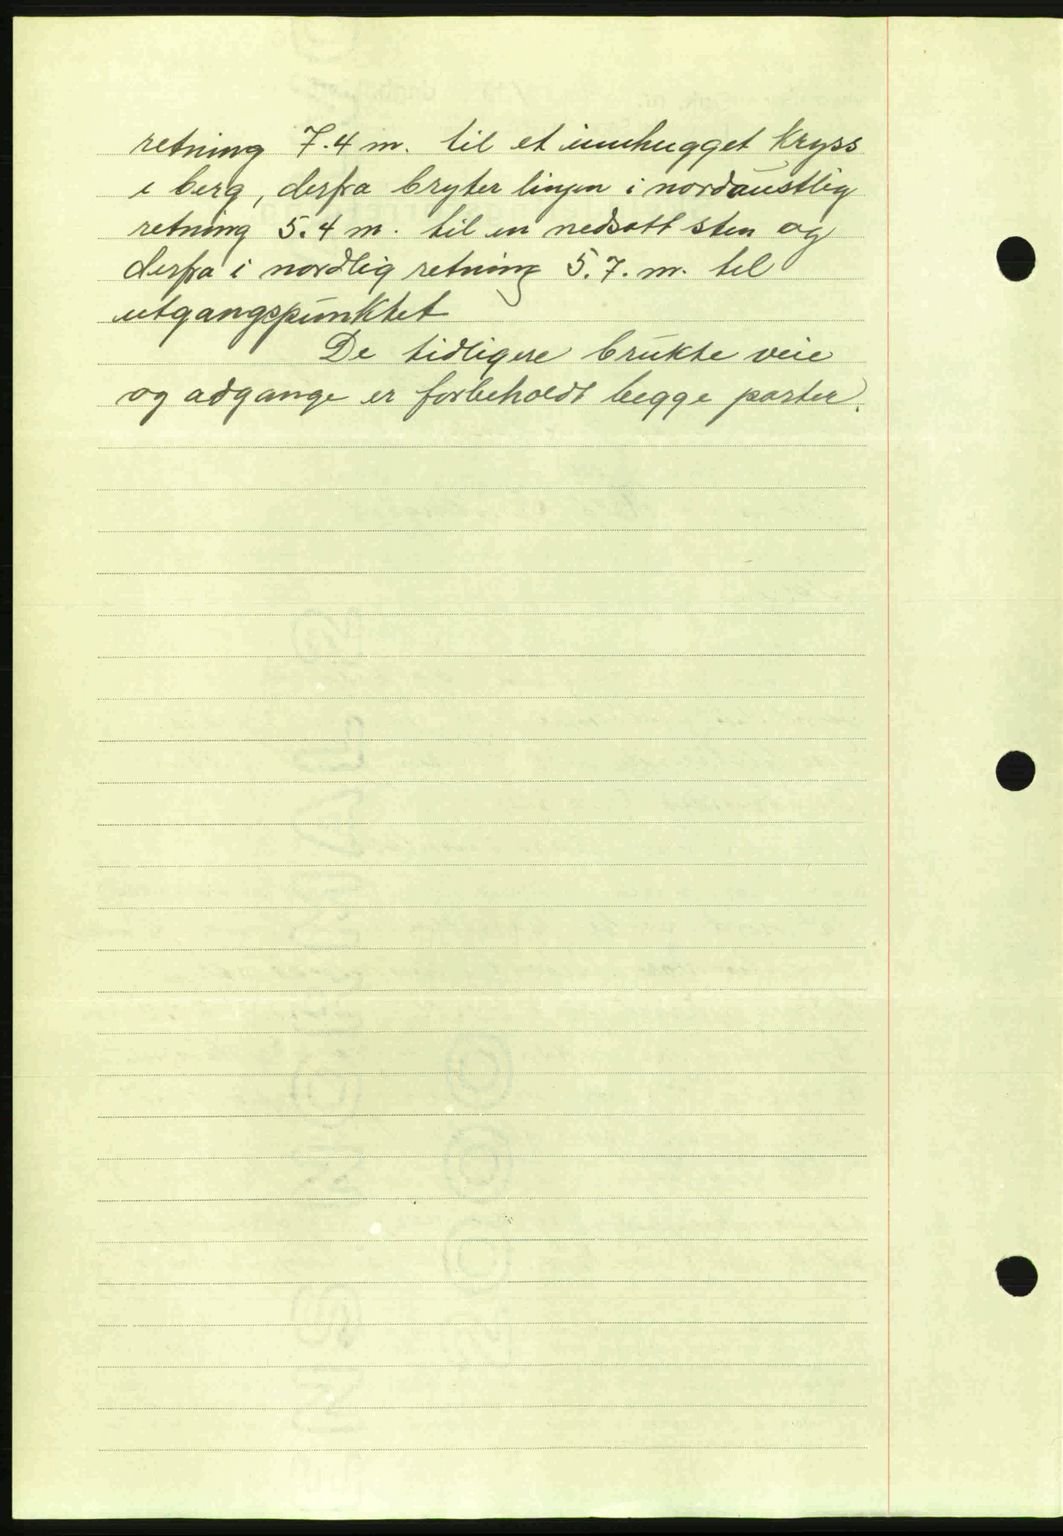 retning 7.4 m. til et innhugget kryss
i berg, derfra bryter linjen i nordaustlig
retning 5.4 m. til en nedsatt sten og
derfra i nordlig retning 5.7. m. til
utgangspunktet
De tidligere brukte veie
og adgange er forbeholdt begge parter.